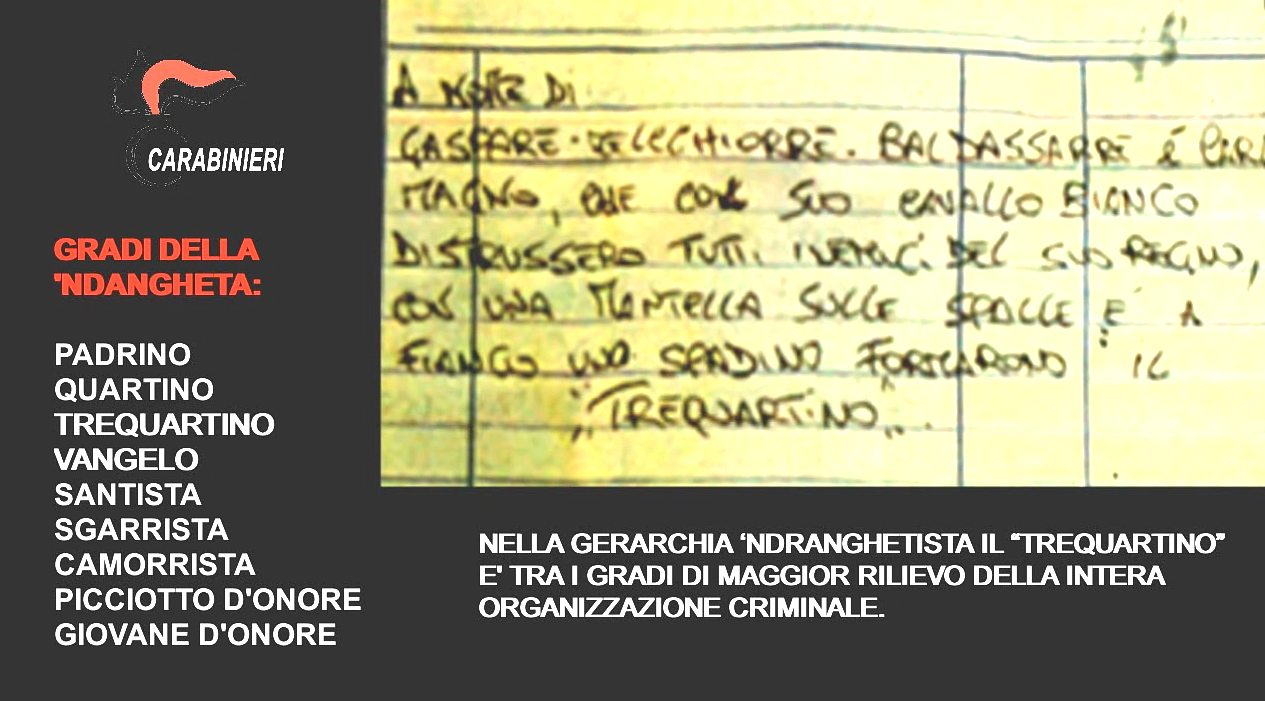 CARABINIERI
GRADI DELLA
'NDANGHETA:
PADRINO
QUARTINO
TREQUARTINO
VANGELO
SANTISTA
SGARRISTA
CAMORRISTA
PICCIOTTO D'ONORE
GIOVANE D'ONORE
A NOME DI
GASPARE - MELCHIORRE. BALDASSARRE É CARL
MAGNO, CHE CON SUO CAVALLO BIANCO
DISTRUSSERO TUTTI I NEMICI DEL SUO REGNO,
CON UNA MANTELLA SULLE SPALLE E A
FIANCO UNO SPADINO IL
"TREQUARTINO".
NELLA GERARCHIA ‘NDRANGHETISTA IL “TREQUARTINO”
E' TRA I GRADI DI MAGGIOR RILIEVO DELLA INTERA
ORGANIZZAZIONE CRIMINALE.